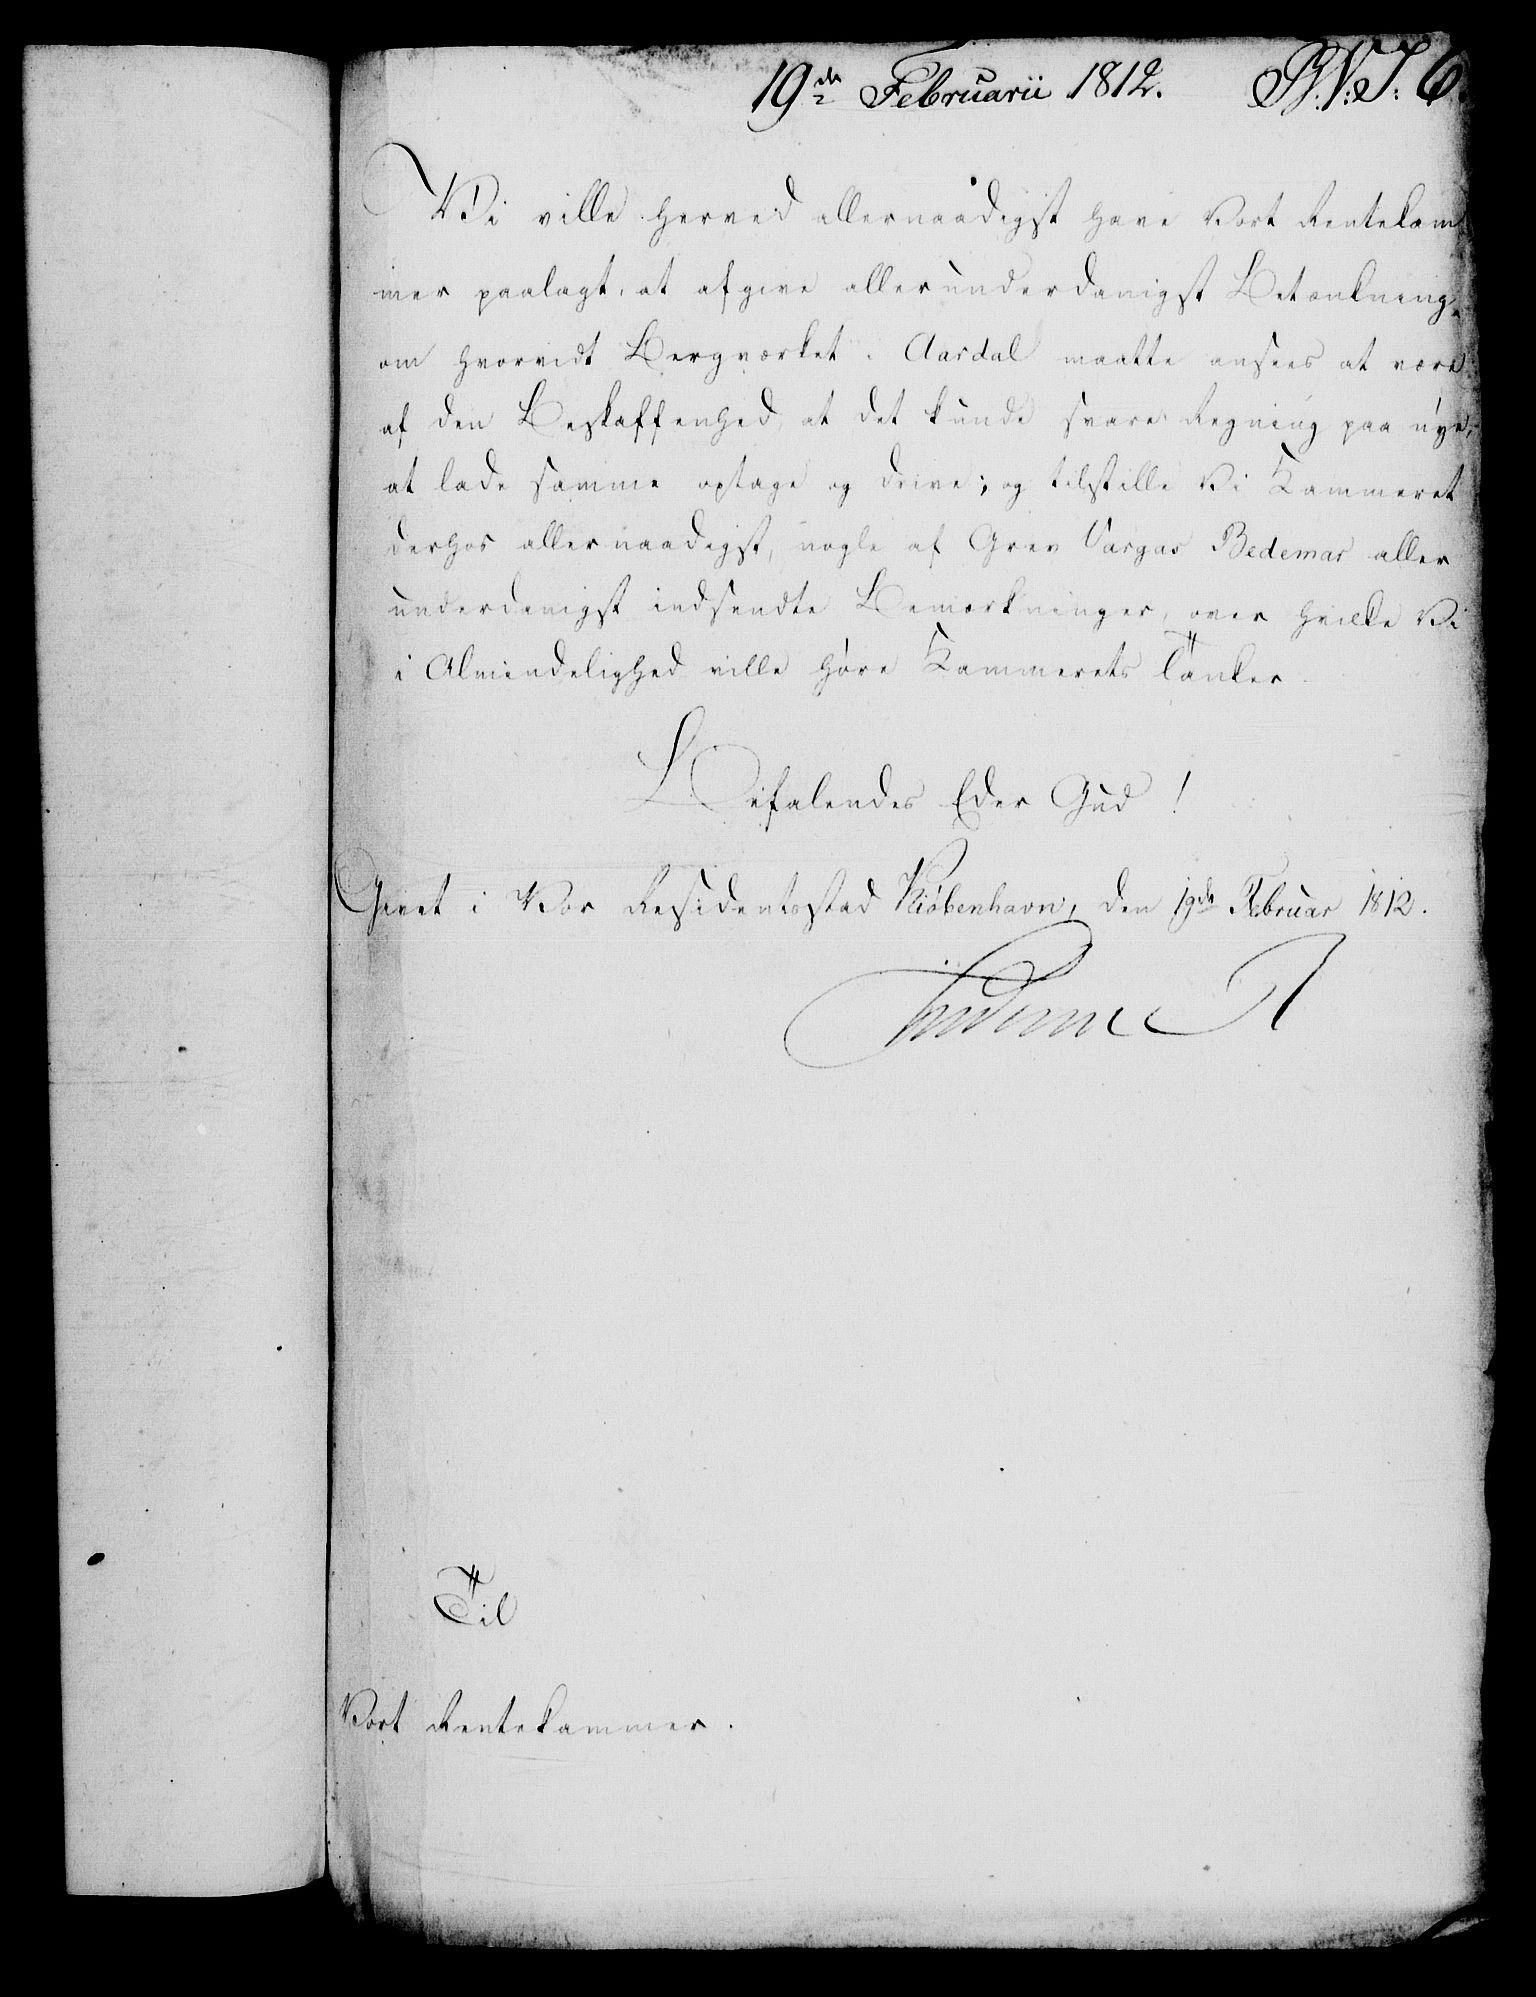 19de Februarii 1812. B.V.J. 6.
Vi ville herved allernaadigst have Vort Rentekam
mer paalagt, at afgive allerunderdanigst Betænkning,
om hvorvidt Bergværket i Aardal maatte ansees at være
af den Beskaffenhed, at det kunde svare Regning paa nye,
at lade samme optage og drive; og tilstille Vi Kammeret
derhos allernaadigst, nogle af Grev Vargas Bedemar aller
underdanigst indsendte Bemærkninger, over hvilke Vi
i Almindelighed ville høre Kammerets Tanker.
Befalendes Eder Gud!
Givet i Vor Residentsstad Kiøbenhavn, den 19de Februar 1812.
Frederik R
Til
Vort Rentekammer.